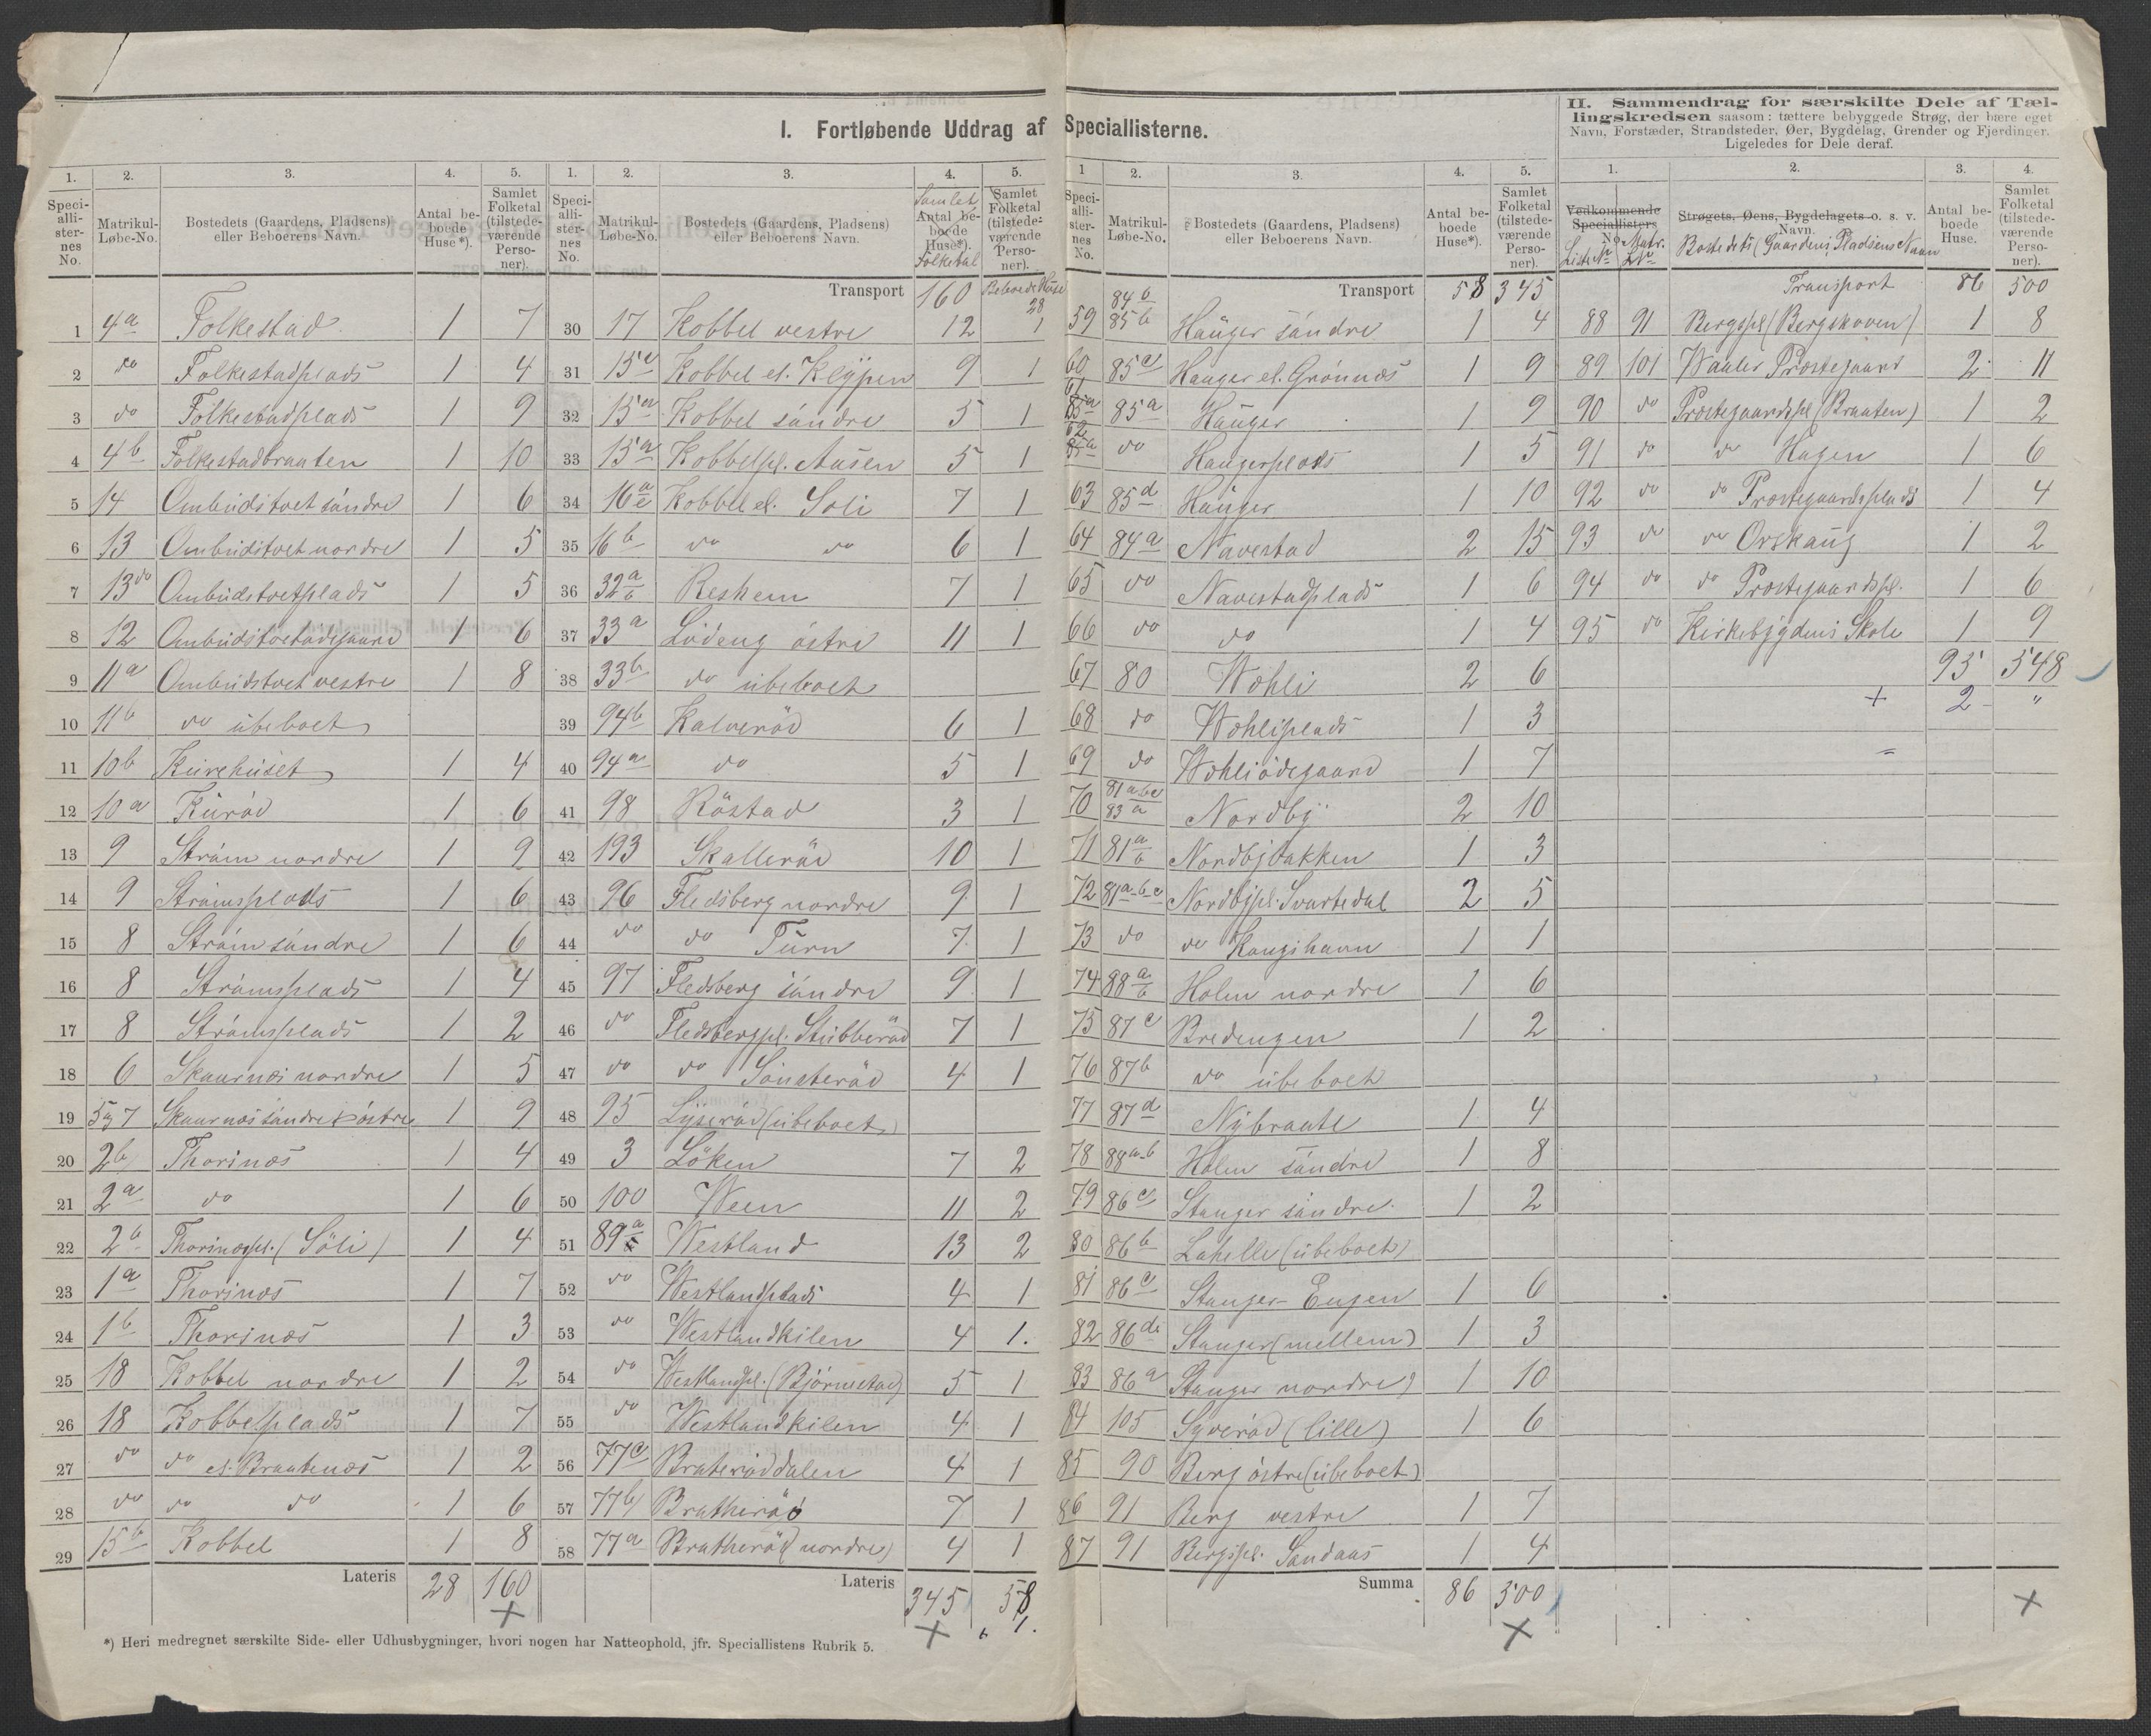 I. Fortløbende Uddrag af Speciallisterne.
1. 2. 3. 4. 5.
Speciallisternes No. Matrikul-Løbe-No. Bostedets (Gaardens, Pladsens) eller Beboerens Navn. Antal beboede Huse*). Samlet Folketal (tilstedeværende Personer).
1 4a Folkestad 1 7
2 do Folkestadplads 1 4
3 do Folkestadplads 1 9
4 4b Folkestadbraaten 1 10
5 14 Ombudstvet söndre 1 6
6 13 Ombudstvet nordre 1 5
7 13 do Ombudstvetplads 1 5
8 12 Ombudstvetödegaard 1 6
9 11a Ombudstvet vestre 1 8
10 11b do ubeboet
11 10b Kurehuset 1 4
12 10a Kuröd 1 6
13 9 Ström nordre 1 9
14 9 Strömsplads 1 6
15 8 Ström söndre 1 6
16 8 Strömsplads 1 4
17 8 Strömsplads 1 2
18 6 Skaarnæs nordre 1 5
19 5 og 7 Skaarnæs söndre & östre 1 9
20 2b Thorsnæs 1 4
21 2a do 1 6
22 2b Thorsnæspl. (Söli) 1 4
23 1a Thorsnæs 1 7
24 1b Thorsnæs 1 3
25 18 Kobbel nordre 1 2
26 18 Kobbelplads 1 7
27 do do el. Braatenæs 1 2
28 do do do 1 6
29 15b Kobbel 1 8
Lateris 28 160
1. 2. 3. 4. 5.
Speciallisternes No. Matrikul-Løbe-No. Bostedets (Gaardens, Pladsens) eller Beboerens Navn. Samlet Antal beboede Huse*). Folketal Samlet Folketal (tilstedeværende Personer). Beboede Huse
Transport 160 28
30 17 Kobbel vestre 12 1
31 15c Kobbel el. Klypen 9 1
32 15a Kobbel söndre 5 1
33 15a Kobbelpl. Aasen 5 1
34 16a c Kobbel el. Soli 7 1
35 16b do do 6 1
36 32a b Reshem 7 1
37 33a Lödeng östre 11 1
38 33b do ubeboet
39 94b Kalveröd 6 1
40 94a do 5 1
41 98 Röstad 3 1
42 193 Skalleröd 10 1
43 96 Fledsberg nordre 9 1
44 do do Turn 7 1
45 97 Fledsberg söndre 9 1
46 do Fledsbergpl. Stubberöd 7 1
47 do do Sönsteröd 4 1
48 95 Lyseröd (ubeboet)
49 3 Löken 7 2
50 100 Ween 11 2
51 89a Westland 13 2
52 do Westlandplads 4 1
53 do Westlandkilen 4 1.
54 do Westlandpl. (Björnestad) 5 1
55 do Westlandkilen 4 1
56 77c Brateröddalen 4 1
57 77b Bratheröd 7 1
58 77a Bratheröd nordre 4 1
Lateris 345 58
1.
*) Heri medregnet særskilte Side- eller Udhusbygninger, hvori nogen har Natteophold, jfr. Speciallistens Rubrik 5.
1 2. 3. 4. 5.
Speciallisternes No. Matrikul-Løbe-No. Bostedets (Gaardens, Pladsens) eller Beboerens Navn. Antal beboede Huse*). Samlet Folketal (tilstedeværende Personer).
Transport 58 345
59 84b 85b Hauger söndre 1 4
60 85c Hauger el. Grönnæs 1 9
61 85a Hauger 1 9
62 do Haugerplads 1 5
63 85d Hauger 1 10
64 84a Navestad 2 15
65 do Navestadplads 1 6
66 do do 1 4
67 80 Wohli 2 6
68 do Wohliplads 1 3
69 do Wohliödegaard 1 7
70 81abc 83a Nordby 2 10
71 81a b Nordbybakken 1 3
72 81a-b-c Nordbypl. Svartedal 2 5
73 do do Haugshavn 1 1
74 88a b Holm nordre 1 6
75 87c Bredengen 1 2
76 87b do ubeboet
77 87d Nybraate 1 4
78 88a-b Holm söndre 1 8
79 86c Stanger söndre 1 2
80 86b Lahelle (ubeboet)
81 86c Stanger-Engen 1 6
82 86d Stanger (mellem) 1 3
83 86a Stanger nordre 1 10
84 105 Syveröd (lille) 1 6
85 90 Berg östre (ubeboet)
86 91 Berg vestre 1 7
87 91 Bergspl. Sandaas 1 4
Summa 86 500
II. Sammendrag for særskilte Dele af Tællingskredsen saasom: tættere bebyggede Strøg, der bære eget Navn, Forstæder, Strandsteder, Øer, Bygdelag, Grender og Fjerdinger. Ligeledes for Dele deraf.
1. 2. 3. 4.
Vedkommende Speciallisters No. Liste No Matr. LNo Strøgets, Øens, Bygdelagets o. s. v. Navn. Bostedets (Gaardens, Pladsens Navn Antal beboede Huse. Samlet Folketal (tilstedeværende Personer).
Transport 86 500
88 91 Bergspl (Bergskoven) 1 8
89 101 Waaler Præstegaard 2 11
90 do Præstegaardspl (Braaten) 1 2
91 do do Hagen 1 6
92 do do Præstegaardsplads 1 4
93 do do Orskaug 1 2
94 do do Præstegaardspl. 1 6
95 do Kirkebygdens Skole 1 9
95 548
+ 2 "